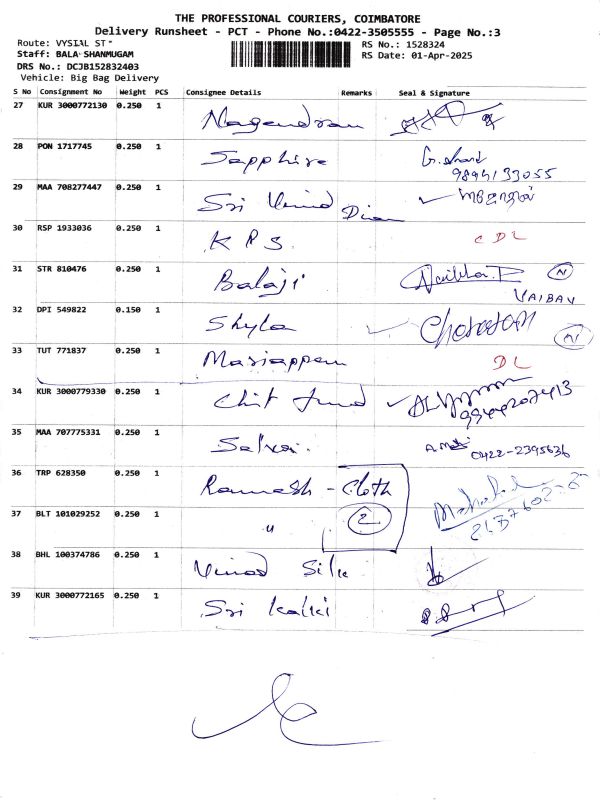 THE PROFESSIONAL COURIERS, COIMBATORE
Delivery Runsheet - PCT - Phone No.:0422-3505555 - Page No.:3
Route: VYSIAL ST"
RS No.: 1528324
Staff: BALA SHANMUGAM
RS Date: 01-Apr-2025
DRS No.: DCJB152832403
Vehicle: Big Bag Delivery
S No Consignment No Weight PCS Consignee Details Remarks Seal & Signature
27 KUR 3000772130 0.250 1 Nagendran
28 PON 1717745 0.250 1 Sapphire G. Anand
9894133055
29 MAA 708277447 0.250 1 Sri Vinod
30 RSP 1933036 0.250 1 K P S CDL
31 STR 810476 0.250 1 Balaji N
VAIBAV
32 DPI 549822 0.150 1 Shyla N
33 TUT 771837 0.250 1 Mariappan DL
34 KUR 3000779330 0.250 1 Chit Fund
35 MAA 707775331 0.250 1 Selvi 0422-2395636
36 TRP 628350 0.250 1 Ramesh - Cloth
37 BLT 101029252 0.250 1 " 2
38 BHL 100374786 0.250 1 Vinod Silk
39 KUR 3000772165 0.250 1 Sri Kalki